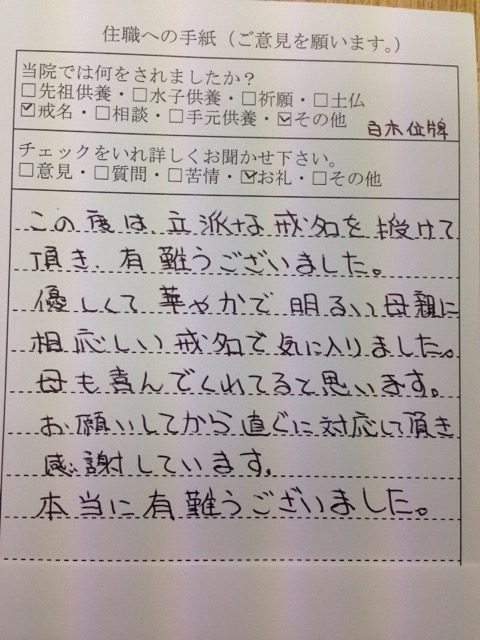 住職への手紙（ご意見を願います。）
当院では何をされましたか？
□先祖供養・□水子供養・□祈願・□土仏
☑戒名・□相談・□手元供養・☑その他 白木位牌
チェックをいれ詳しくお聞かせ下さい。
□意見・□質問・□苦情・☑お礼・□その他
この度は立派な戒名を授けて
頂き、有難うございました。
優しくて華やかで明るい母親に
相応しい戒名で気に入りました。
母も喜んでくれてると思います。
お願いしてから直ぐに対応して頂き
感謝しています。
本当に有難うございました。